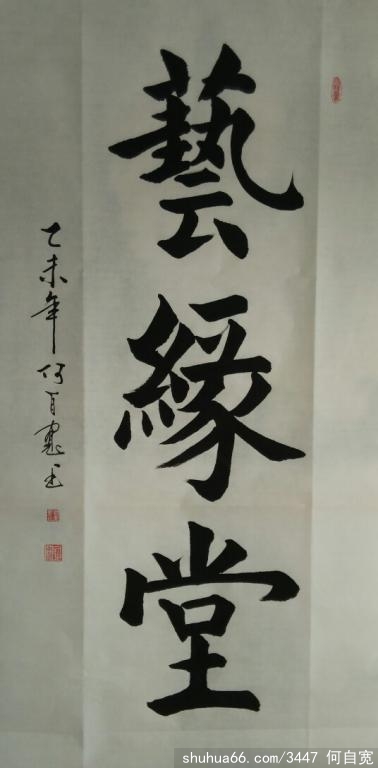 藝緣堂
乙未年何自寬书
shuhua66.com/3447 何自宽